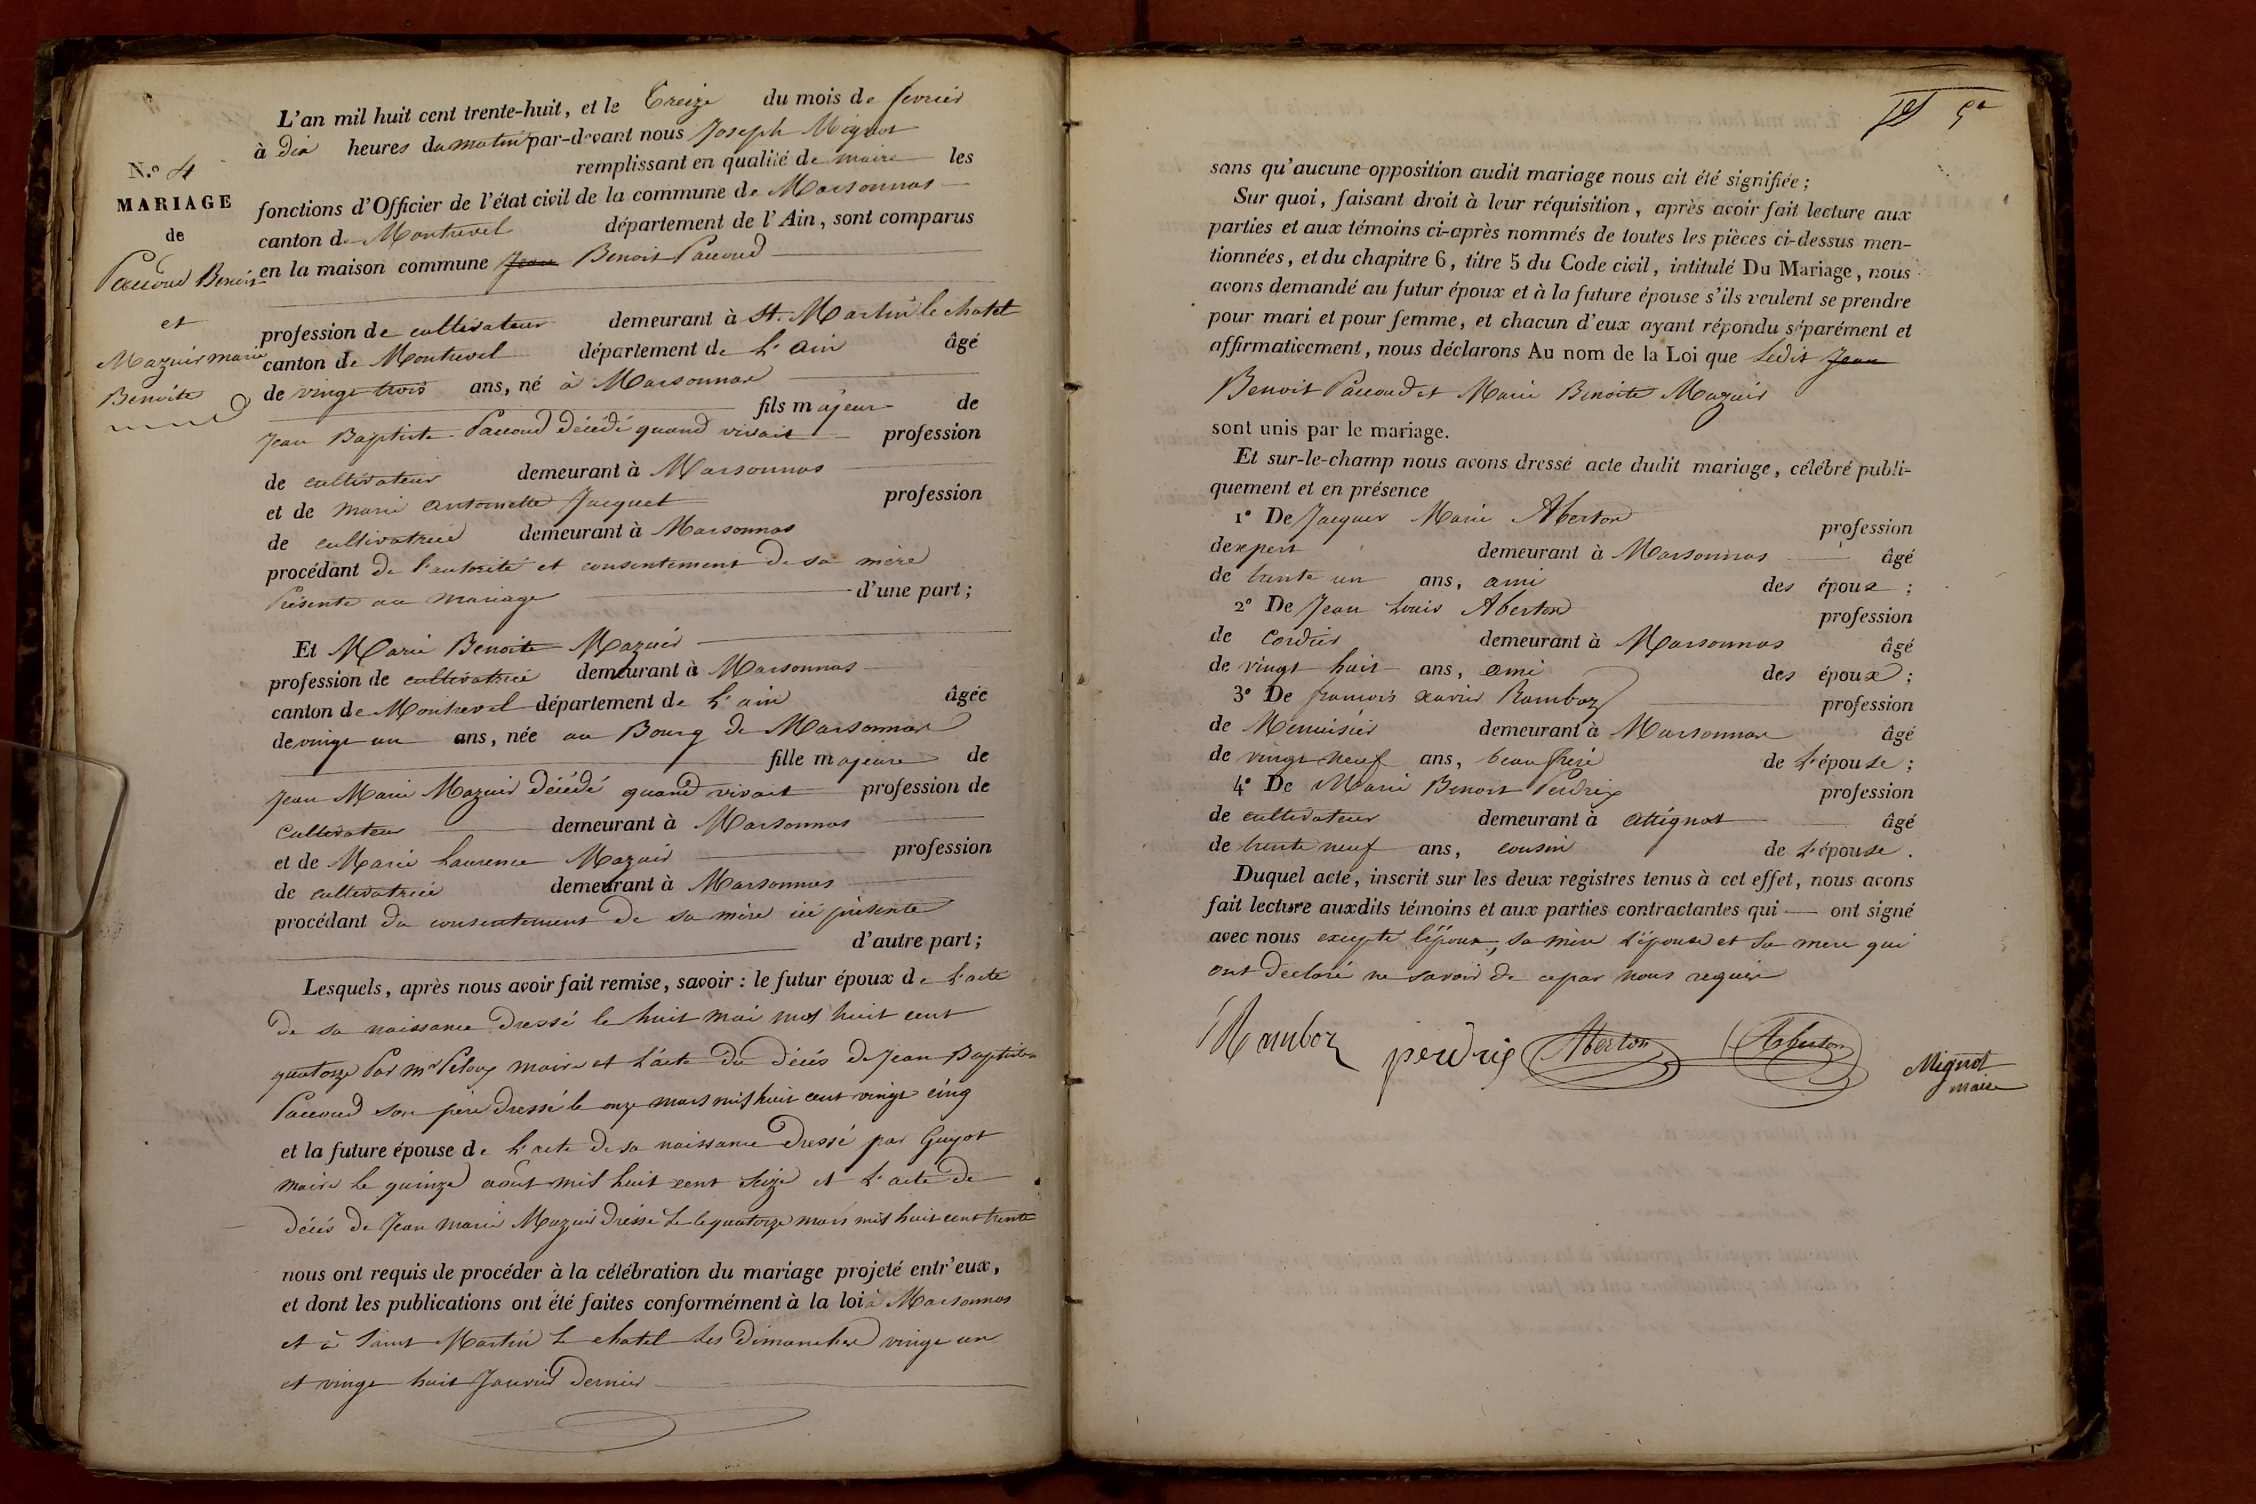 N.º 4
MARIAGE
de
Paccoud Benoit
et
Mazuir marie
Benoite
L'an mil huit cent trente-huit, et le Treize du mois de fevrier
à dix heures du matin par-devant nous Joseph Mignot
remplissant en qualité de maire les
fonctions d'Officier de l'état civil de la commune de Marsonnas
canton de Montrevel département de l'Ain, sont comparus
en la maison commune Jean Benoit Paccoud
profession de cultivateur demeurant à St. Martin le chatel
canton de Montrevel département de L'ain âgé
de vingt trois ans, né à Marsonnas
fils majeur de
Jean Baptiste Paccoud décédé quand vivait profession
de cultivateur demeurant à Marsonnas
et de marie antoinette Jacquet profession
de cultivatrice demeurant à Marsonnas
procédant de l'autorité et consentement de sa mère
Présente au mariage d'une part;
Et Marie Benoite Mazuir
profession de cultivatrice demeurant à Marsonnas
canton de Montrevel département de L'ain âgée
de vingt un ans, née au Bourg de Marsonnas
fille majeure de
Jean Marie Mazuir décédé quand vivait profession de
Cultivateur demeurant à Marsonnas
et de Marie Laurence Mazuir profession
de cultivatrice demeurant à Marsonnas
procédant du consentement de sa mère ici présente
d'autre part;
Lesquels, après nous avoir fait remise, savoir : le futur époux de L'acte
de sa naissance dressé le huit mai mil huit cent
quatorze Par mr maire et L'acte du décés de Jean Baptiste
Paccoud son père dressé le onze mars mil huit cent vingt cinq
et la future épouse de L'acte de sa naissance dressé par Guyot
maire le quinze août mil huit cent seize et L'acte de
décés de Jean marie Mazuir dressé le quatorze mars mil huit cent trente
nous ont requis de procéder à la célébration du mariage projeté entr'eux,
et dont les publications ont été faites conformément à la loi à Marsonnas
et à Saint Martin le chatel les Dimanches vingt un
et vingt huit Janvier dernier
sans qu'aucune opposition audit mariage nous ait été signifiée;
Sur quoi, faisant droit à leur réquisition, après avoir fait lecture aux
parties et aux témoins ci-après nommés de toutes les pièces ci-dessus men-
tionnées, et du chapitre 6, titre 5 du Code civil, intitulé Du Mariage, nous
avons demandé au futur époux et à la future épouse s'ils veulent se prendre
pour mari et pour femme, et chacun d'eux ayant répondu séparément et
affirmativement, nous déclarons Au nom de la Loi que Ledit Jean
Benoit Paccoud et Marie Benoite Mazuir
sont unis par le mariage.
Et sur-le-champ nous avons dressé acte dudit mariage, célébré publi-
quement et en présence
1º De Jacques Marie Aberton profession
d'expert demeurant à Marsonnas âgé
de trente un ans, ami des époux ;
2º De Jean Louis Aberton profession
de Cordier demeurant à Marsonnas âgé
de vingt huit ans, ami des époux ;
3º De francois xavier Ramboz profession
de Menuisier demeurant à Marsonnas âgé
de vingt neuf ans, beau frère de L'épouse ;
4º De Marie Benoit Perdrix profession
de cultivateur demeurant à attignat âgé
de trente neuf ans, cousin de L'épouse .
Duquel acte, inscrit sur les deux registres tenus à cet effet, nous avons
fait lecture auxdits témoins et aux parties contractantes qui ont signé
avec nous excepté l'époux, sa mère L'épouse et sa mere qui
ont declaré ne savoir de ce par nous requis
Ramboz perdrix Aberton Aberton Mignot
maire